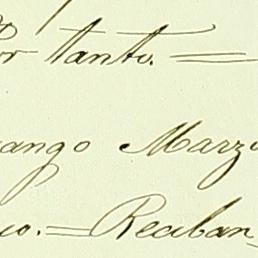 Por tanto. =
ango Marzo
io. = Reciban